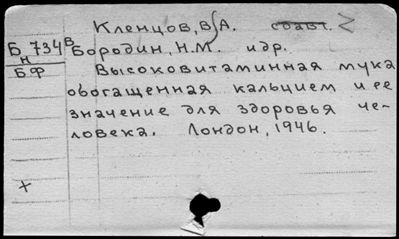 Кленцов, В.А. соавт.
Б 734 в Бородин, Н.М. и др.
н
БФ
Высоковитаминная мука
обогащенная кальцием и ее
значение для здоровья че-
ловека. Лондон, 1946.
+